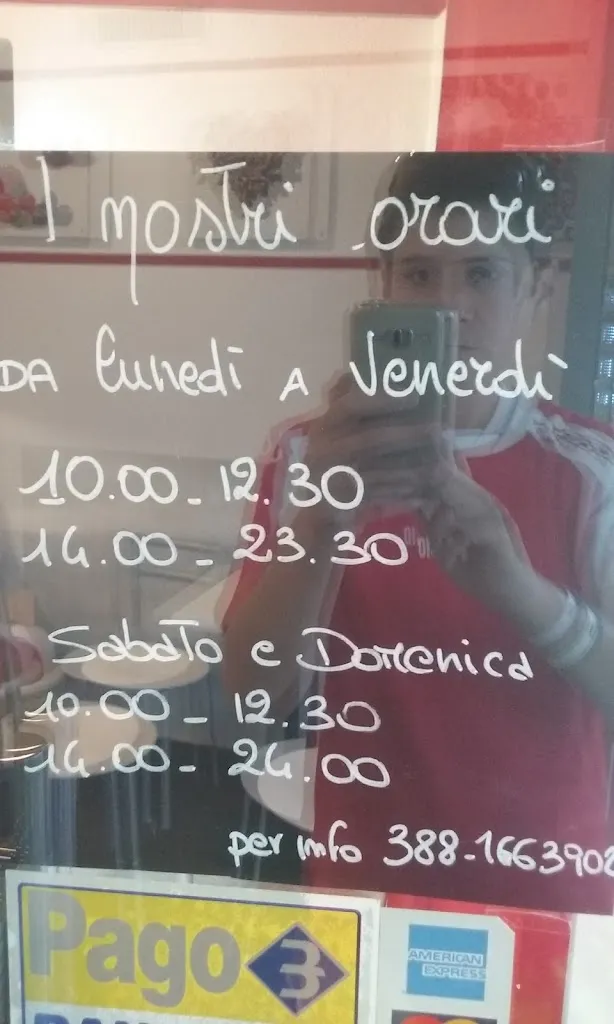 I nostri orari
DA Lunedì A Venerdì
10.00 - 12.30
14.00 - 23.30
Sabato e Domenica
10.00 - 12.30
14.00 - 24.00
per info 388-1663902
Pago
AMERICAN
EXPRESS